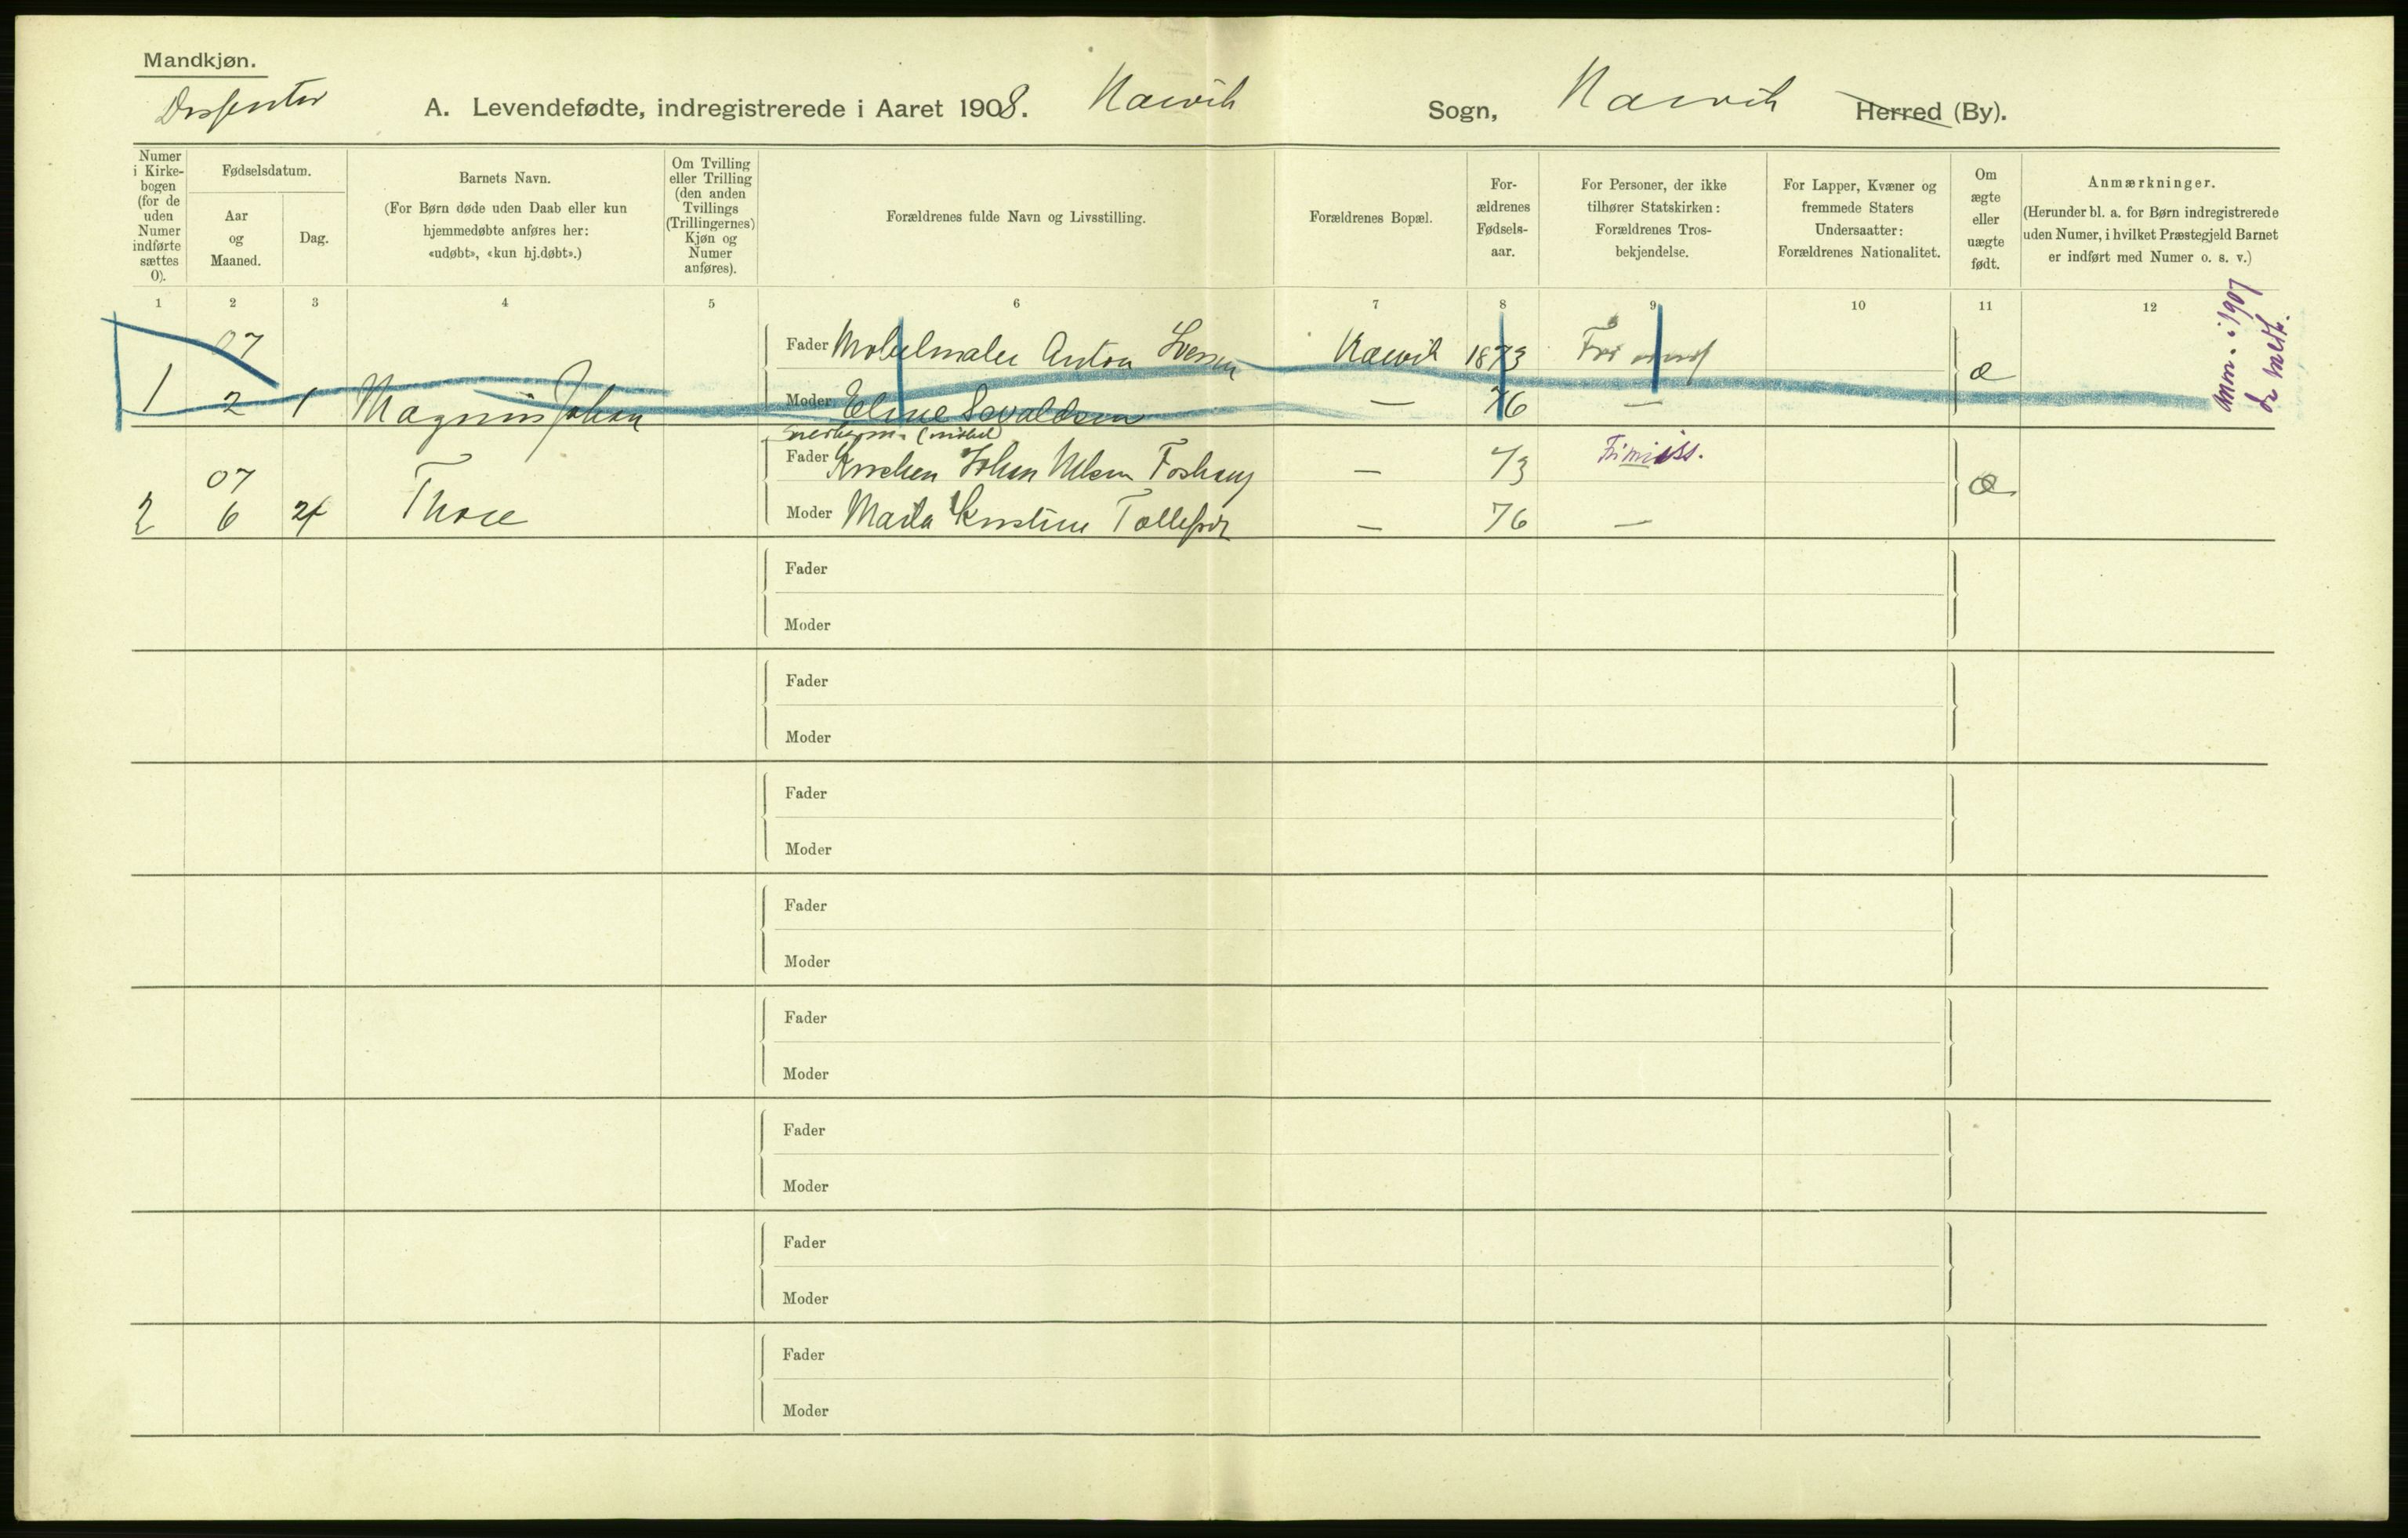 Mandkjøn.
Dissenter
A. Levendefødte, indregistrerede i Aaret 1908. Narvik Sogn, Narvik Herred (By).
Numer i Kirkebogen (for de uden Numer indførte sættes 0).
Fødselsdatum.
Aar og Maaned.
Dag.
Barnets Navn.
(For Børn døde uden Daab eller kun
hjemmedøbte anføres her:
«udøbt», «kun hj.døbt».)
Om Tvilling
eller Trilling
(den anden
Tvillings
(Trillingernes)
Kjøn og
Numer
anføres).
Forældrenes fulde Navn og Livsstilling.
Forældrenes Bopæl.
For-
ældrenes
Fødsels-
aar.
For Personer, der ikke
tilhører Statskirken:
Forældrenes Tros-
bekjendelse.
For Lapper, Kvæner og
fremmede Staters
Undersaatter:
Forældrenes Nationalitet.
Om
ægte
eller
uægte
født.
Anmærkninger.
(Herunder bl. a. for Børn indregistrerede
uden Numer, i hvilket Præstegjeld Barnet
er indført med Numer o. s. v.)
1 2 3 4 5 6 7 8 9 10 11 12
07 Fader Anton Narvik 1873 Fri
1 2 1 Magnus Johan Moder Eline — 76 — æ
i 1907
07 Fader Johan Nilsen Foshaug — 73 Frimiss.
2 6 Thore Moder Kristine — 76 — æ
Fader
Moder
Fader
Moder
Fader
Moder
Fader
Moder
Fader
Moder
Fader
Moder
Fader
Moder
Fader
Moder